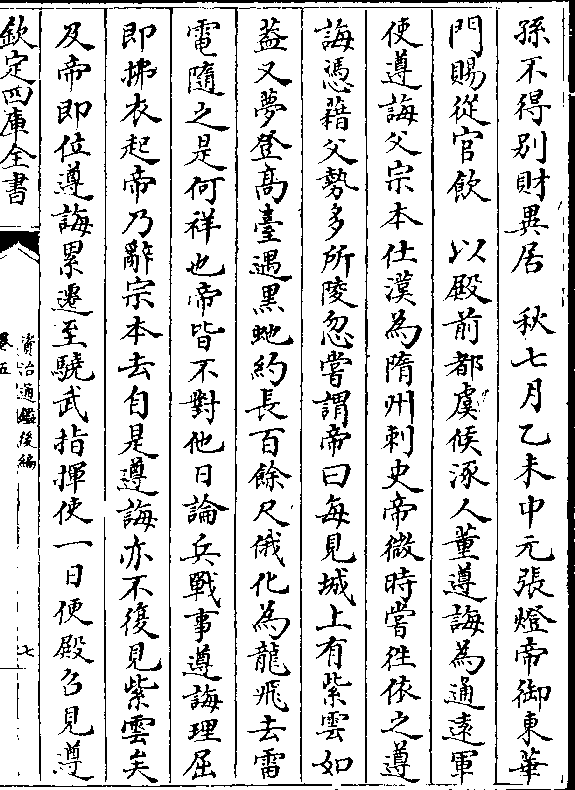 孫不得别財異居　秋七月乙未中元張燈帝御東華
門賜從官飲　以殿前都虞候涿人董遵誨為通逺軍
使遵誨父宗本仕漢為隋州刺史帝微時嘗徃依之遵
誨憑藉父勢多所陵忽嘗謂帝曰每見城上有紫雲如
葢又夢登髙臺遇黑虵約長百餘尺俄化為龍飛去雷
電隨之是何祥也帝皆不對他日論兵戰事遵誨理屈
即拂衣起帝乃辭宗本去自是遵誨亦不復見紫雲矣
及帝即位遵誨累遷至驍武指揮使一日便殿召見遵
欽定四庫全書
資治通鑑後編
卷五
七